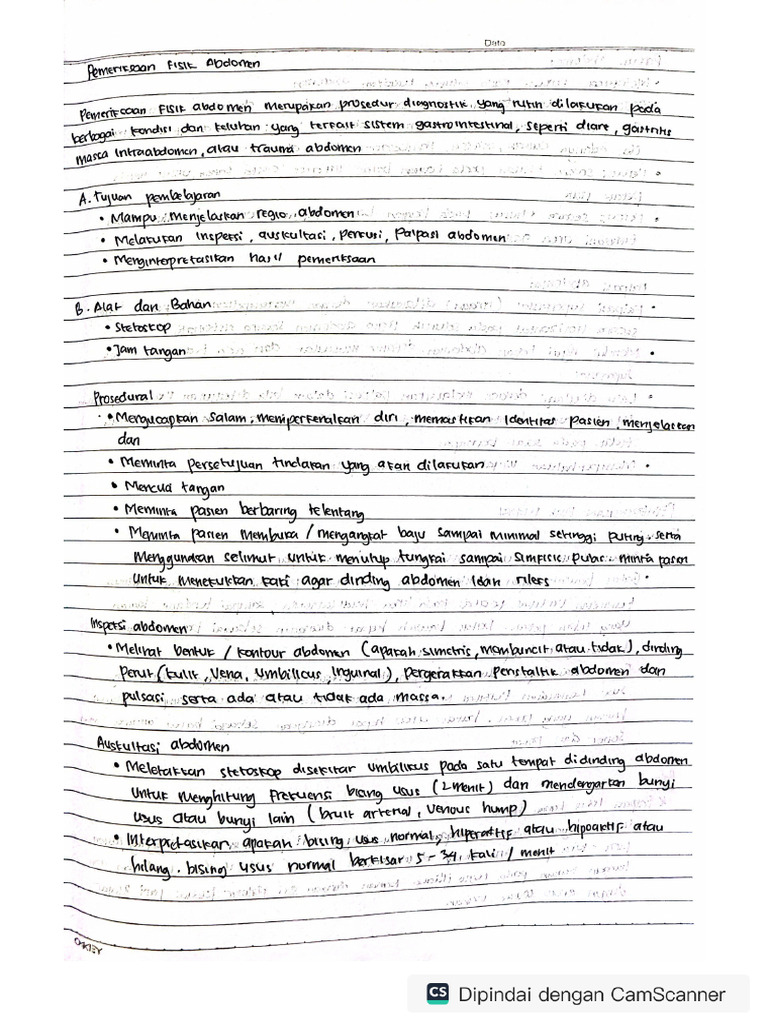 Date
Pemeriksaan Fisik Abdomen
Pemeriksaan Fisik abdomen merupakan prosedur diagnostik yang rutin dilakukan pada
berbagai kondisi dan keluhan yang terkait sistem gastrointestinal, seperti diare, gastritis
massa intraabdomen, atau trauma abdomen
A. Tujuan pembelajaran
• Mampu menjelaskan regio abdomen
• Melakukan Inspeksi, auskultasi, perkusi, Palpasi abdomen
• Menginterpretasikan hasil pemeriksaan
B. Alat dan Bahan
• Stetoskop
• Jam tangan
Prosedural
• Mengucapkan salam, memperkenalkan diri, memastikan Identitas pasien, menjelaskan
dan
• Meminta persetujuan tindakan yang akan dilakukan
• Mencuci tangan
• Meminta pasien berbaring telentang
• Meminta pasien membuka / mengangkat baju sampai minimal setinggi puting serta
Menggunakan selimut untuk menutup tungkai sampai simfisis pubis minta pasien
untuk menekukkan kaki agar dinding abdomen rileks
Inspeksi abdomen
• Melihat bentuk / kontour abdomen (apakah simetris, membuncit atau tidak), dinding
perut (kulit, vena, umbilicus, inguinal), pergerakkan peristaltik abdomen dan
pulsasi serta ada atau tidak ada massa.
Auskultasi abdomen
• Meletakkan stetoskop disekitar umbilikus pada satu tempat didinding abdomen
untuk menghitung frekuensi bising usus (2 menit) dan mendengarkan bunyi
usus atau bunyi lain (bruit arterial, venous hump)
• Interpretasikan apakah bising usus normal, hiperaktif atau hipoaktif atau
hilang. bising usus normal berkisar 5 - 34 kali / menit
OKEY
CS Dipindai dengan CamScanner